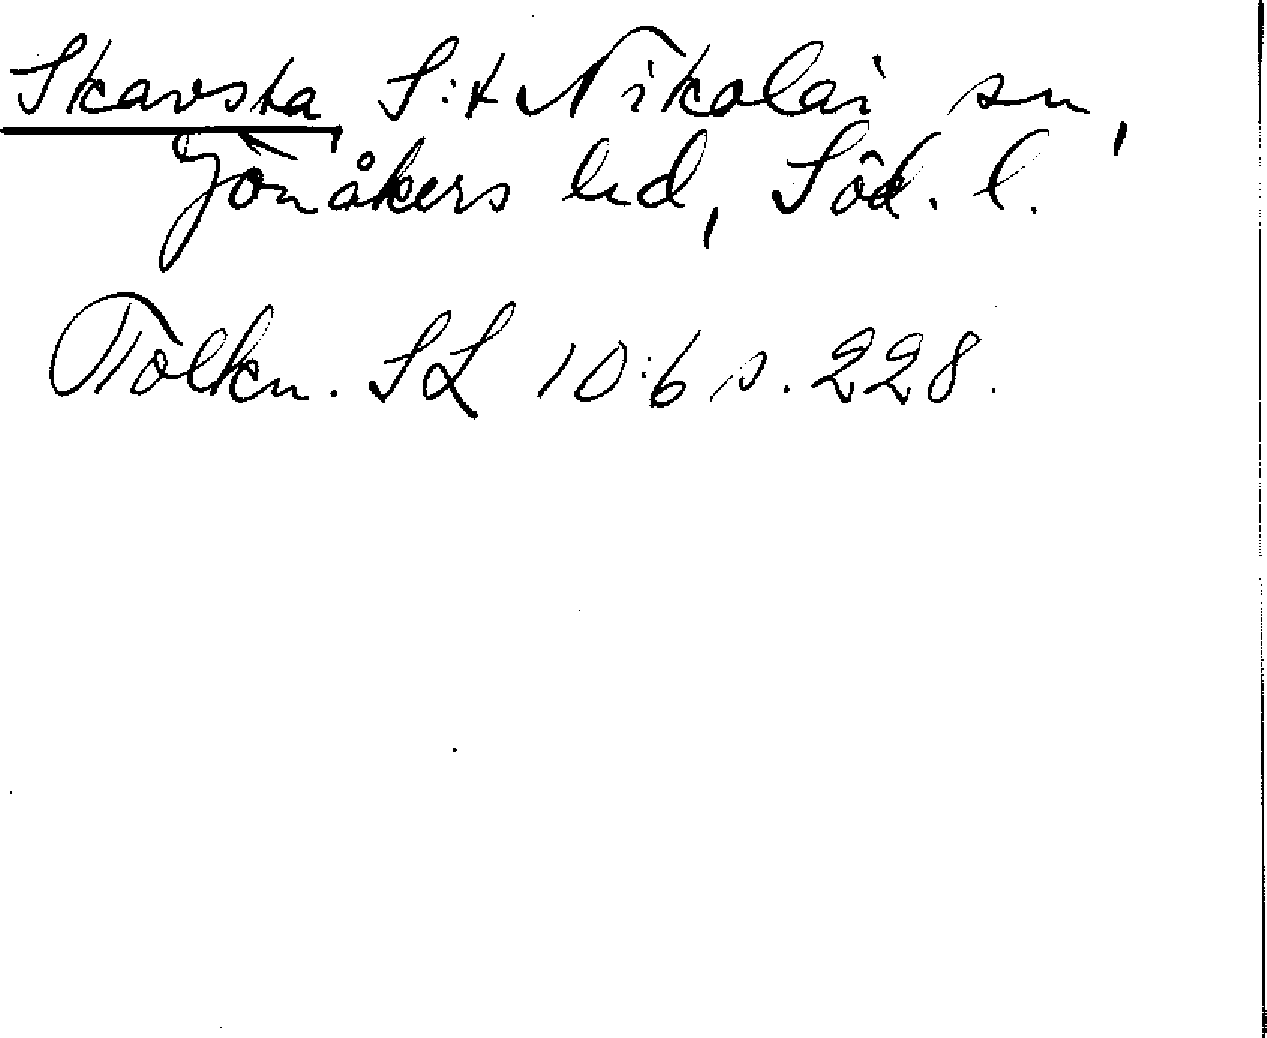 Skavsta, S:t Nikolai sn,
Jönåkers hd, Söd. l.
Tolkn. SL 10:6 s. 228.